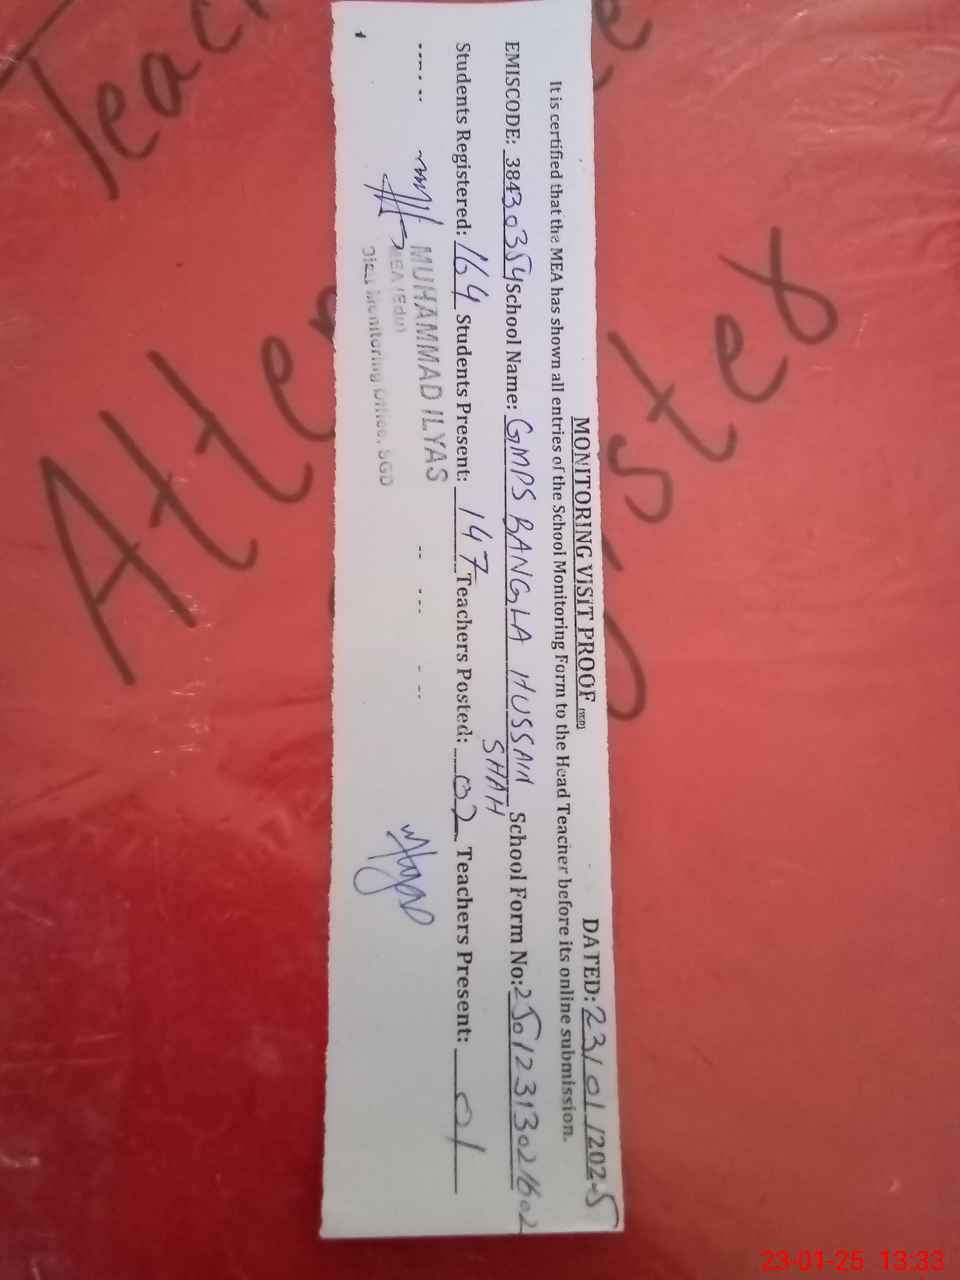 MONITORING VISIT PROOF (MEP) DATED: 23/01/2025
It is certified that the MEA has shown all entries of the School Monitoring Form to the Head Teacher before its online submission.
EMISCODE: 38430354 School Name: GMPS BANGLA HUSSAIN SHAH School Form No: 25012313021602
Students Registered: 164 Students Present: 147 Teachers Posted: 02 Teachers Present: 01
MUHAMMAD ILYAS
MEA (Edu)
Monitoring Office, SGD
23-01-25 13:33